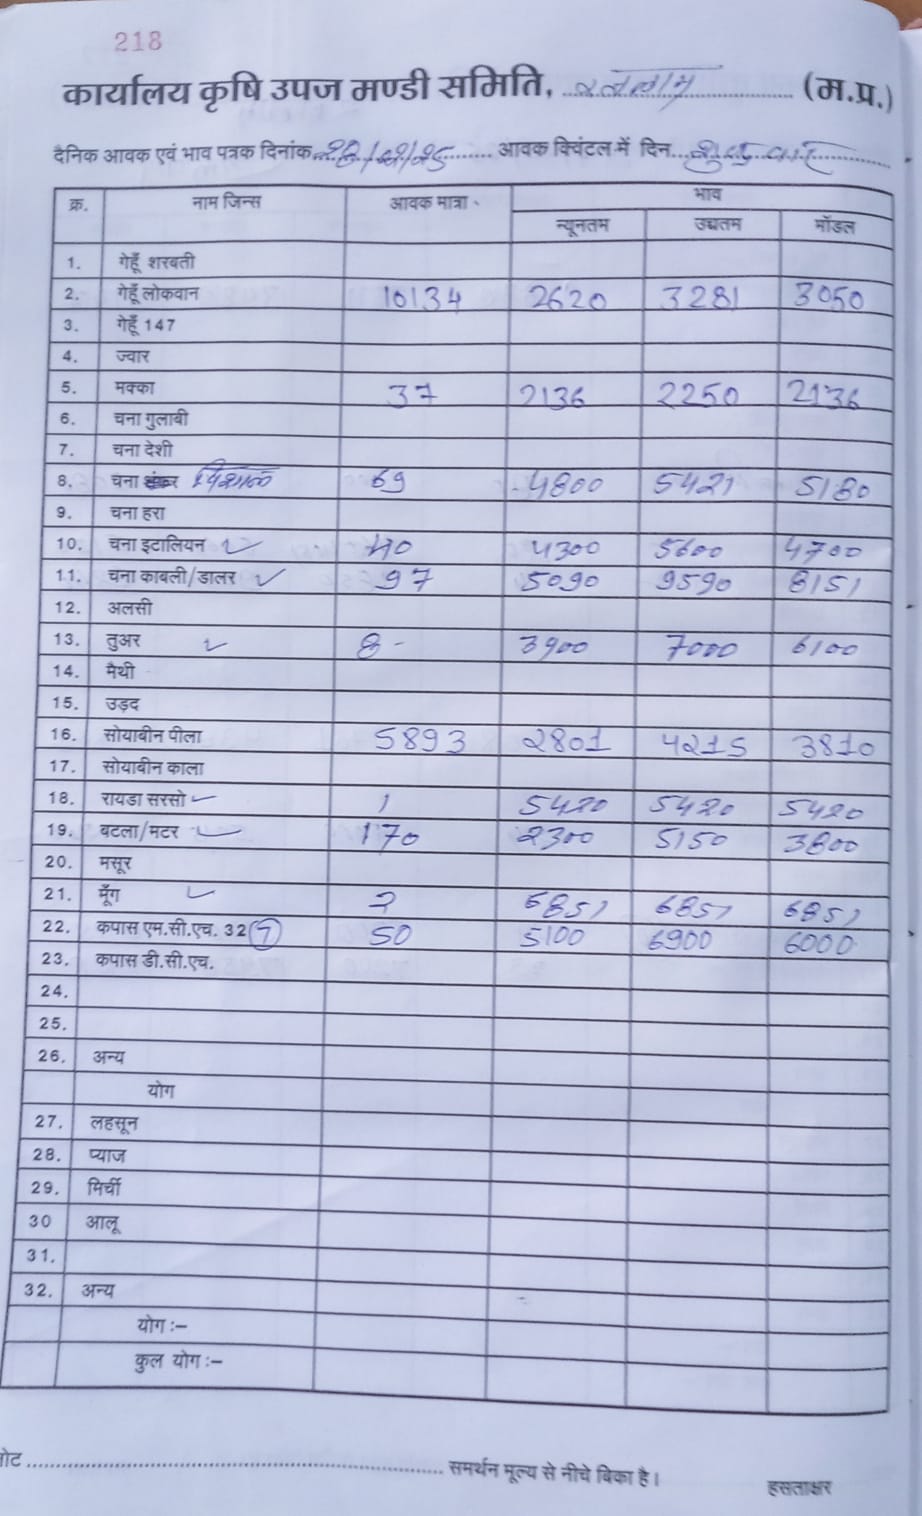 218
कार्यालय कृषि उपज मण्डी समिति, रतलाम (म.प्र.)
दैनिक आवक एवं भाव पत्रक दिनांक /25 आवक क्विंटल में दिन
क्र. नाम जिन्स आवक मात्रा भाव
न्यूनतम उच्चतम मॉडल
1. गेहूँ शरबती
2. गेहूँ लोकवान 10134 2620 3281 3050
3. गेहूँ 147
4. ज्वार
5. मक्का 37 2136 2250 2136
6. चना गुलाबी
7. चना देशी
8. चना विशाल 69 4800 5421 5180
9. चना हरा
10. चना इटालियन 4300 5600 4700
11. चना काबली/डालर 97 5090 9590 8151
12. अलसी
13. तुअर 8 - 3900 7000 6100
14. मैथी
15. उड़द
16. सोयाबीन पीला 5893 2801 4215 3810
17. सोयाबीन काला
18. रायडा सरसो 1 5420 5420 5420
19. बटला/मटर 170 2300 5150 3800
20. मसूर
21. मूँग 2 6851 6851 6851
22. कपास एम.सी.एच. 32 (7) 50 5100 6900 6000
23. कपास डी.सी.एच.
24.
25.
26. अन्य
योग
27. लहसून
28. प्याज
29. मिर्ची
30 आलू
31.
32. अन्य
योग :–
कुल योग :–
नोट समर्थन मूल्य से नीचे बिका है।
हसताक्षर